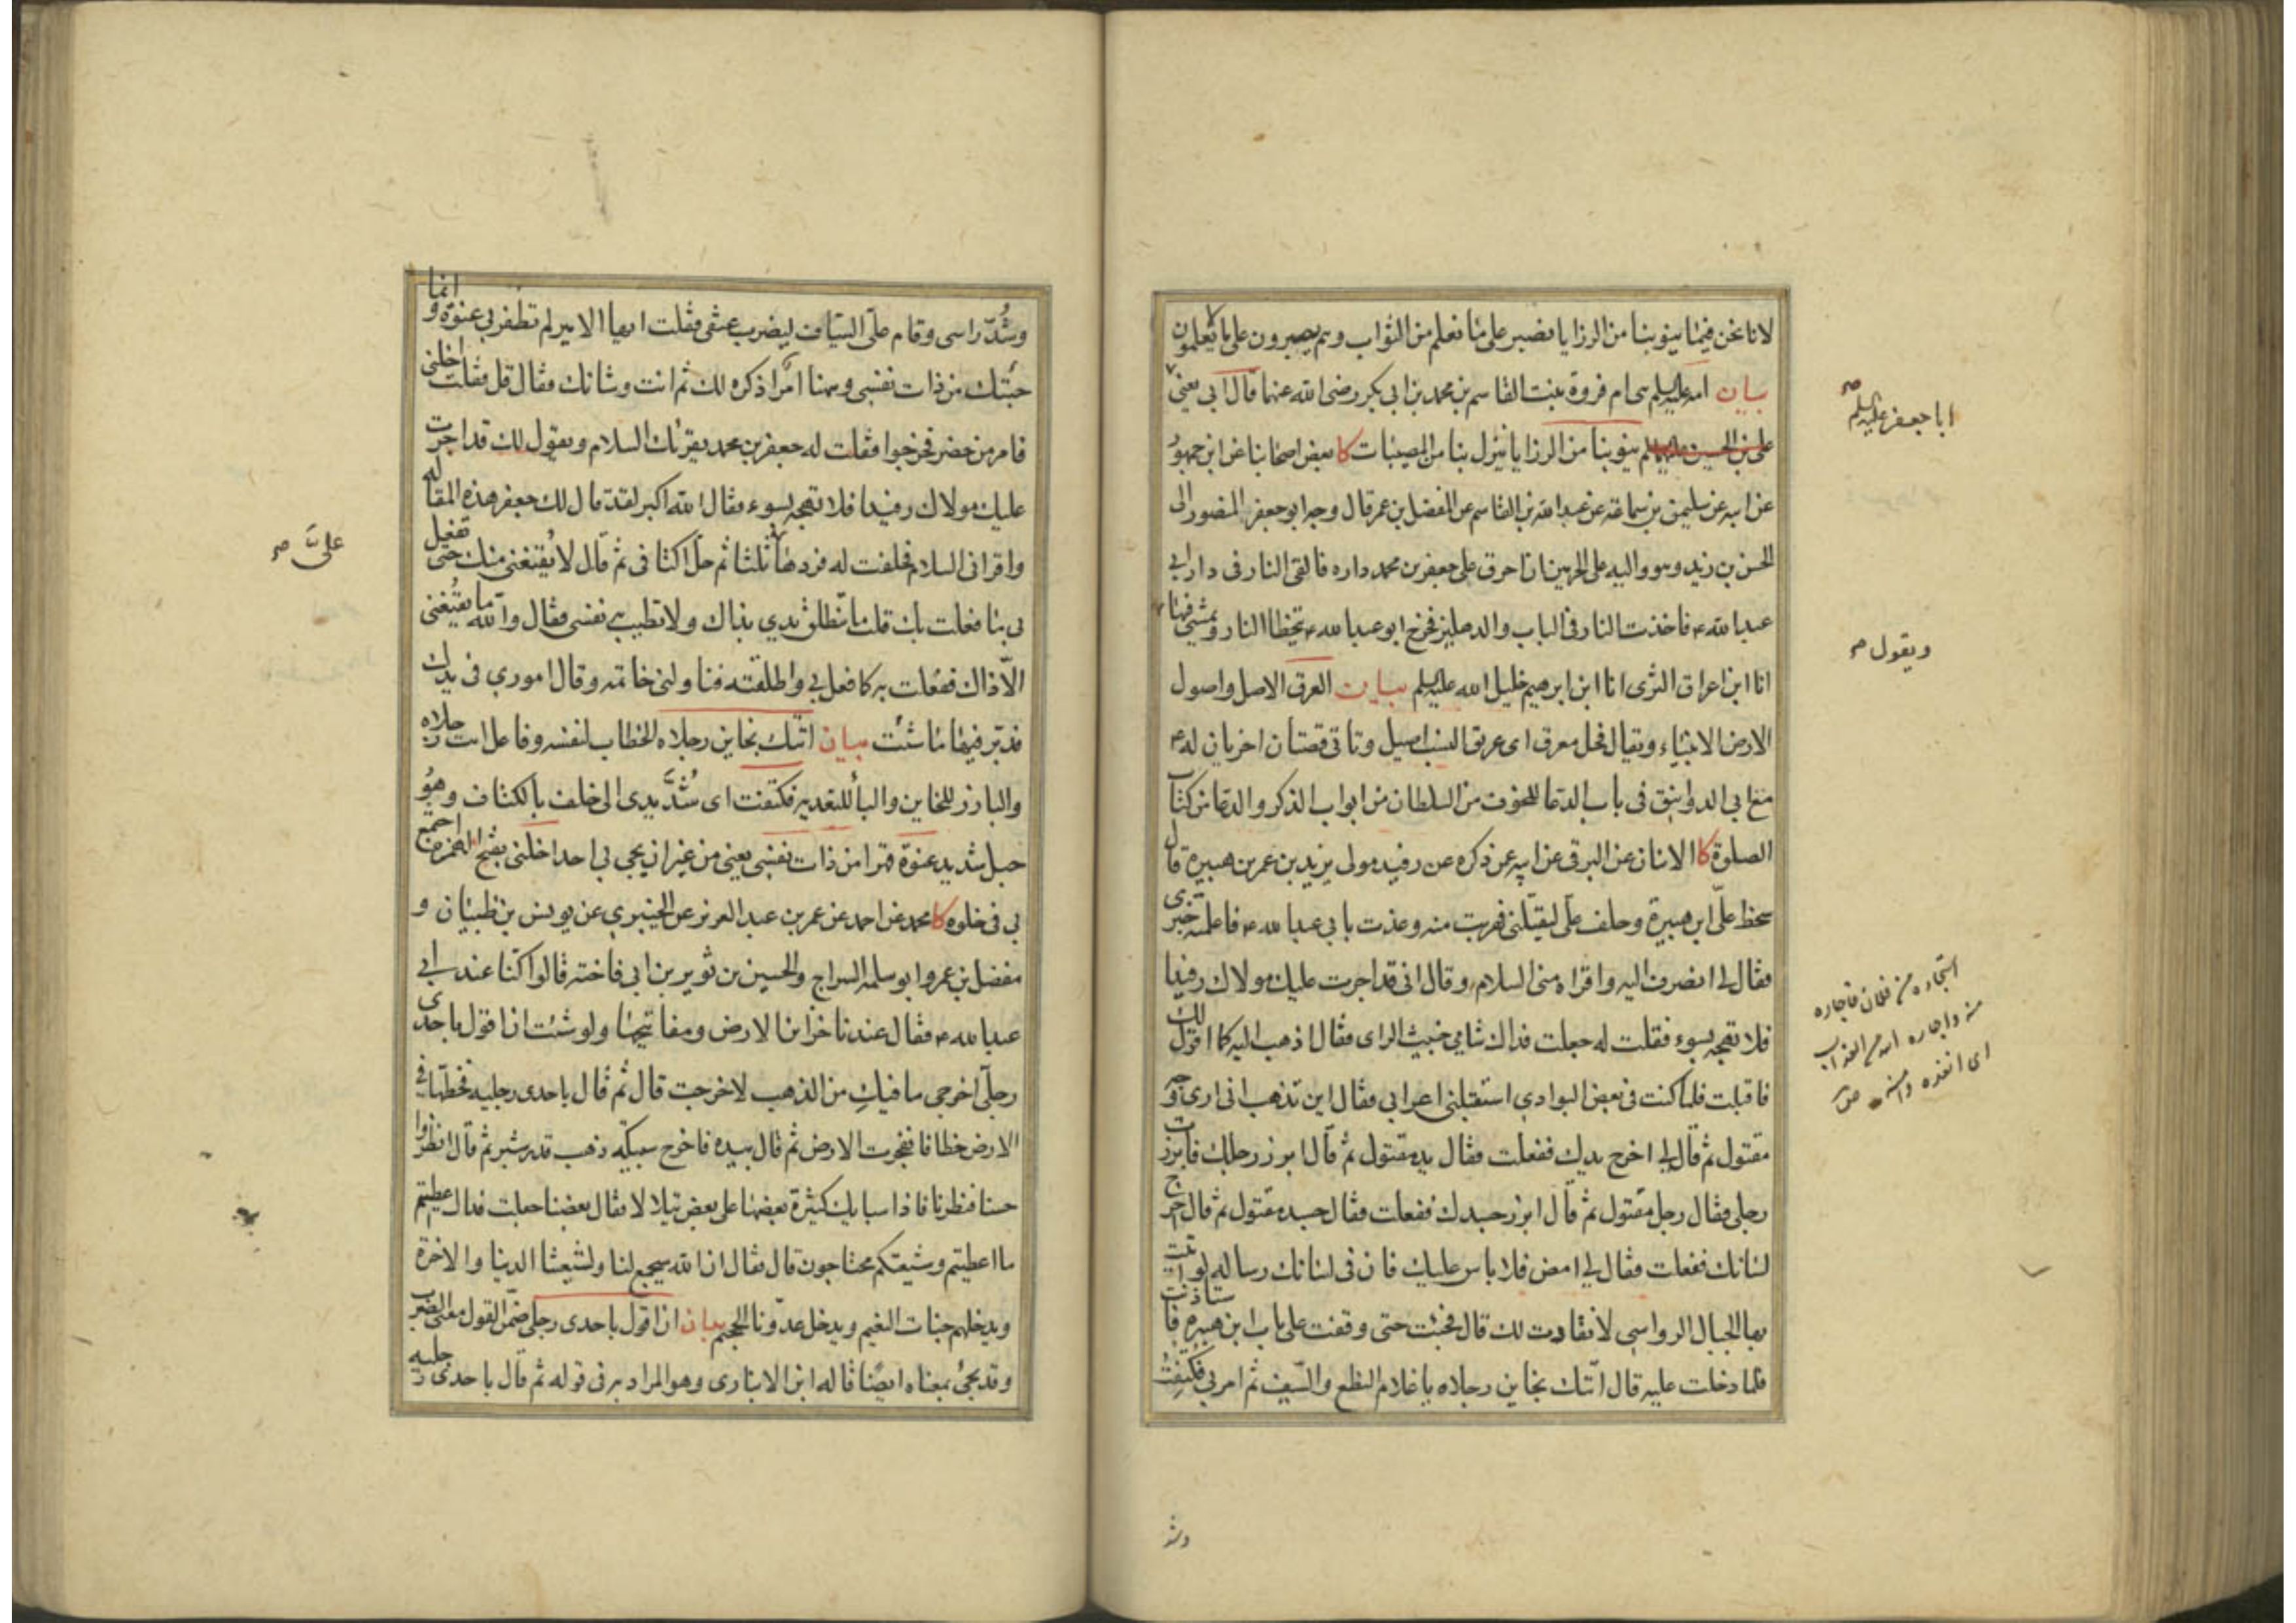 لانا نحن فيما ينوبنا من الرزايا نصبر على ما نعلم من الثواب وهم يصبرون على ما لا يعلمون
بيان امه عليه السلم هى ام فروة بنت القاسم بن محمد بن ابي بكر رضى الله عنهما قال ابي يعنى
على بن الحسين عليهما السلم ينوبنا من الرزايا ينزل بنا من المصيبات كا بعض اصحابنا عن ابن جمهور
عن ابيه عن سليمن بن سماعة عن عبد الله بن القاسم عن المفضل بن عمر قال وجه ابو جعفر المنصور الى
الحسن بن زيد وهو واليه على الحرمين ان احرق على جعفر بن محمد داره فالقى النار فى دار ابي
عبد الله ع فاخذت النار فى الباب والدهليز فخرج ابو عبد الله ع يتخطا النار ويمشي فيها
انا ابن اعراق الثرى انا ابن ابرهيم خليل الله عليه السلم بيان العرق الاصل واصول
الارض الانبياء ويقال فحل معرق اى عريق النسب اصيل وتاتى قصتان اخريان له ع
مع ابي الدوانيق فى باب الدعا للخوف من السلطان من ابواب الذكر والدعا من كتاب
الصلوة كا الاثنان عن البرقى عن ابيه عن ذكره عن رفيد مولى يزيد بن عمر بن هبيرة قال
سخط علىّ ابن هبيرة وحلف علىّ ليقتلنى فهربت منه وعذت بابي عبد الله ع فاعلمته خبرى
فقال لى انصرف اليه واقراه منى السلام وقال انى قد اجرت عليك مولاك رفيدا
فلا تهجه بسوء فقلت له جعلت فداك شامي خبيث الراى فقال اذهب اليه كما اقول لك
فاقبلت فلما كنت فى بعض البوادي استقبلنى اعرابي فقال اين تذهب انى ارى وجه
مقتول ثم قال لى اخرج يدك ففعلت فقال يد مقتول ثم قال ابرز رجلك فابرزت
رجلى فقال رجل مقتول ثم قال ابرز جسدك ففعلت فقال جسد مقتول ثم قال اخرج
لسانك ففعلت فقال لى امض فلا باس عليك فان فى لسانك رسالة لو اتيت
بها الجبال الرواسى لانقادت لك قال فجئت حتى وقفت على باب ابن هبيره فاستاذنت
فلما دخلت عليه قال اتتك بخاين رجلاه يا غلام النطع والسيف ثم امر بي فكتفت
ابا جعفر عليه السلم صح
ويقول صح
استجاره من فلان فاجاره
منه واجاره الله من العذاب
اى انقذه منه ص
وشد
وشُدّ راسى وقام علىّ السياف ليضرب عنقى فقلت ايها الامير لم تظفر بي عنوة وانما
جئتك من ذات نفسى وههنا امرا اذكره لك ثم انت وشانك فقال قل فقلت اخلنى
فامر من حضر فخرجوا فقلت له جعفر بن محمد يقرئك السلام ويقول لك قد اجرت
عليك مولاك رفيدا فلا تهجه بسوء فقال الله اكبر لقد قال لك جعفر هذه المقاله
واقرانى السلام فحلفت له فردها ثلثا ثم حل اكتافى ثم قال لا يقنعنى منك حتى تفعل
بى ما فعلت بك قلت ما تنطلق يدي بذاك ولا تطيب به نفسى فقال والله ما يقنعنى
الا ذاك ففعلت به كما فعل بي واطلقته فناولنى خاتمه وقال اموري فى يدك
فدبر فيها ما شئت بيان اتتك بخاين رجلاه الخطاب لنفسه وفاعل اتت رجلاه
والبارز للخاين والبا للتعديه فكتفت اى شُدَّ يدى الى خلف بالكتاف وهو
حبل شديد عنوة قهرا من ذات نفسى يعنى من غير ان يجى بى احد اخلنى بفتح الهمزه اجمع
بي فى خلوه كا محمد عن احمد عن عمر بن عبد العزيز عن الخيبرى عن يونس بن ظبيان و
مفضل بن عمر وابو سلمه السراج والحسين بن ثوير بن ابى فاخته قالوا كنا عند ابي
عبد الله ع فقال عندنا خزاين الارض ومفاتيحها ولو شئت ان اقول باحدى
رجلى اخرجى ما فيكِ من الذهب لاخرجت قال ثم قال باحدى رجليه فخطها فى
الارض خطا فانفجرت الارض ثم قال بيده فاخرج سبيكه ذهب قدر شبر ثم قال انظروا
حسنا فنظرنا فاذا سبايك كثيرة بعضها على بعض يتلالا فقال بعضنا جعلت فداك اعطيتم
ما اعطيتم وشيعتكم محتاجون قال فقال ان الله سيجمع لنا ولشيعتنا الدنيا والاخرة
ويدخلهم جنات النعيم ويدخل عدونا الجحيم بيان ان اقول باحدى رجلى ضمن القول معنى الضرب
وقد يجئ بمعناه ايضا قاله ابن الانبارى وهو المراد به فى قوله ثم قال باحدى رجليه
علىَّ صح